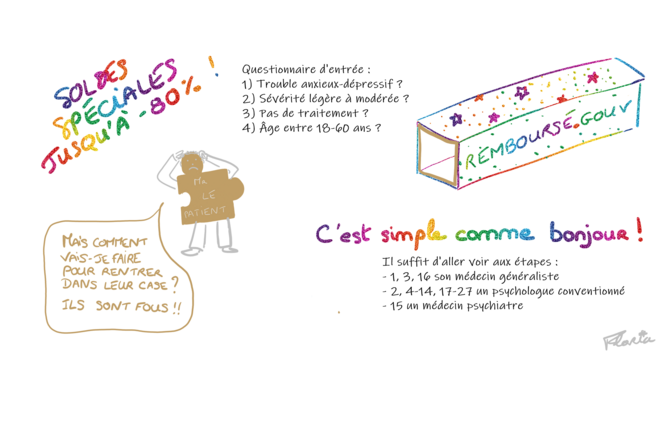 SOLDES
SPÉCIALES
JUSQU'À -80% !
Questionnaire d'entrée :
1) Trouble anxieux-dépressif ?
2) Sévérité légère à modérée ?
3) Pas de traitement ?
4) Âge entre 18-60 ans ?
REMBOURSÉ.GOUV
Mr
LE
PATIENT
MAIS COMMENT
VAIS-JE FAIRE
POUR RENTRER
DANS LEUR CASE ?
ILS SONT FOUS !!
C'est simple comme bonjour !
Il suffit d'aller voir aux étapes :
- 1, 3, 16 son médecin généraliste
- 2, 4-14, 17-27 un psychologue conventionné
- 15 un médecin psychiatre